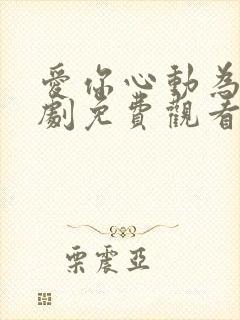 愛你心動為
劇免費觀看
栗震亞